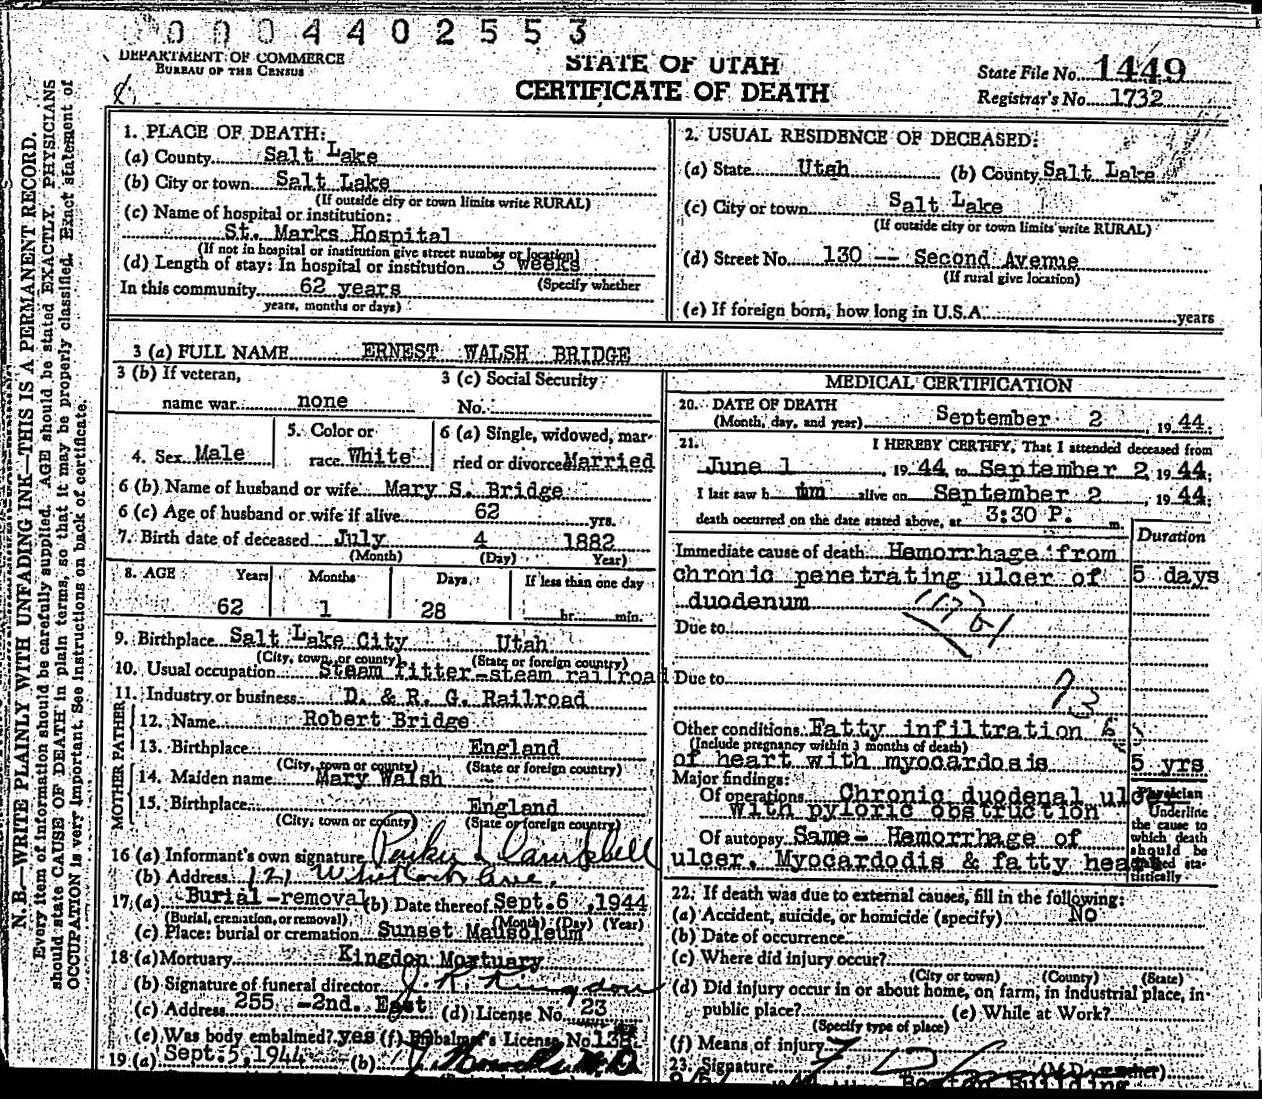 0 0 0 4 4 0 2 5 5 3
DEPARTMENT OF COMMERCE
BUREAU OF THE CENSUS
STATE OF UTAH
CERTIFICATE OF DEATH
State File No. 1449
Registrar's No. 1732
N. B.—WRITE PLAINLY WITH UNFADING INK—THIS IS A PERMANENT RECORD.
Every item of information should be carefully supplied. AGE should be stated EXACTLY. PHYSICIANS
should state CAUSE OF DEATH in plain terms, so that it may be properly classified. Exact statement of
OCCUPATION is very important. See instructions on back of certificate.
1. PLACE OF DEATH:
(a) County Salt Lake
(b) City or town Salt Lake
(If outside city or town limits write RURAL)
(c) Name of hospital or institution:
St. Marks Hospital
(If not in hospital or institution give street number or location)
(d) Length of stay: In hospital or institution 3 weeks
(Specify whether
In this community 62 years
years, months or days)
2. USUAL RESIDENCE OF DECEASED:
(a) State Utah (b) County Salt Lake
(c) City or town Salt Lake
(If outside city or town limits write RURAL)
(d) Street No. 130 -- Second Avenue
(If rural give location)
(e) If foreign born, how long in U.S.A. years
3 (a) FULL NAME ERNEST WALSH BRIDGE
3 (b) If veteran,
name war none
3 (c) Social Security
No.
4. Sex Male
5. Color or
race White
6 (a) Single, widowed, mar-
ried or divorced Married
6 (b) Name of husband or wife Mary S. Bridge
6 (c) Age of husband or wife if alive 62 yrs.
7. Birth date of deceased July 4 1882
(Month) (Day) Year)
8. AGE Years Months Days If less than one day
62 1 28 hr. min.
9. Birthplace Salt Lake City Utah
(City, town, or county) (State or foreign country)
10. Usual occupation Steam fitter-steam railroad
11. Industry or business D. & R. G. Railroad
FATHER
12. Name Robert Bridge
13. Birthplace England
(City, town or county) (State or foreign country)
MOTHER
14. Maiden name Mary Walsh
15. Birthplace England
(City, town or county) (State or foreign country)
16 (a) Informant's own signature Parker L Campbell
(b) Address 121 Whitlock Ave.
17.(a) Burial-removal (b) Date thereof Sept. 6, 1944
(Burial, cremation, or removal) (Month) (Day) (Year)
(c) Place: burial or cremation Sunset Mausoleum
18 (a) Mortuary Kingdon Mortuary
(b) Signature of funeral director J. R. Kingdon
(c) Address 255 -2nd. East (d) License No. 23
(e) Was body embalmed? yes (f) Embalmer's License No.
19 (a) Sept. 5, 1944 (b) M.D.
MEDICAL CERTIFICATION
20. DATE OF DEATH
(Month, day, and year) September 2, 1944.
21. I HEREBY CERTIFY, That I attended deceased from
June 1, 1944 to September 2, 1944;
I last saw him alive on September 2, 1944;
death occurred on the date stated above, at 3:30 P. m.
Duration
Immediate cause of death Hemorrhage from
chronic penetrating ulcer of 5 days
duodenum
Due to
Due to
Other conditions Fatty infiltration
(Include pregnancy within 3 months of death)
of heart with myocardosis 5 yrs
Major findings:
Of operations Chronic duodenal ulcer
with pyloric obstruction
Of autopsy Same- Hemorrhage of
ulcer. Myocardodis & fatty heart
Physician
Underline
the cause to
which death
should be
charged sta-
tistically
22. If death was due to external causes, fill in the following:
(a) Accident, suicide, or homicide (specify) No
(b) Date of occurrence
(c) Where did injury occur?
(City or town) (County) (State)
(d) Did injury occur in or about home, on farm, in industrial place, in
public place? (e) While at Work?
(Specify type of place)
(f) Means of injury
23. Signature
Boston Building